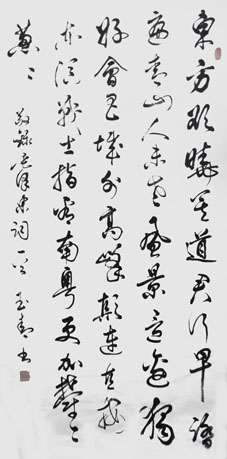 東方欲曉莫道君行早踏
遍青山人未老風景這邊獨
好會昌城外高峰顛連直接
东溟戰士指看南粵更加鬱〻
蔥〻
敬録毛澤東詞一首
书